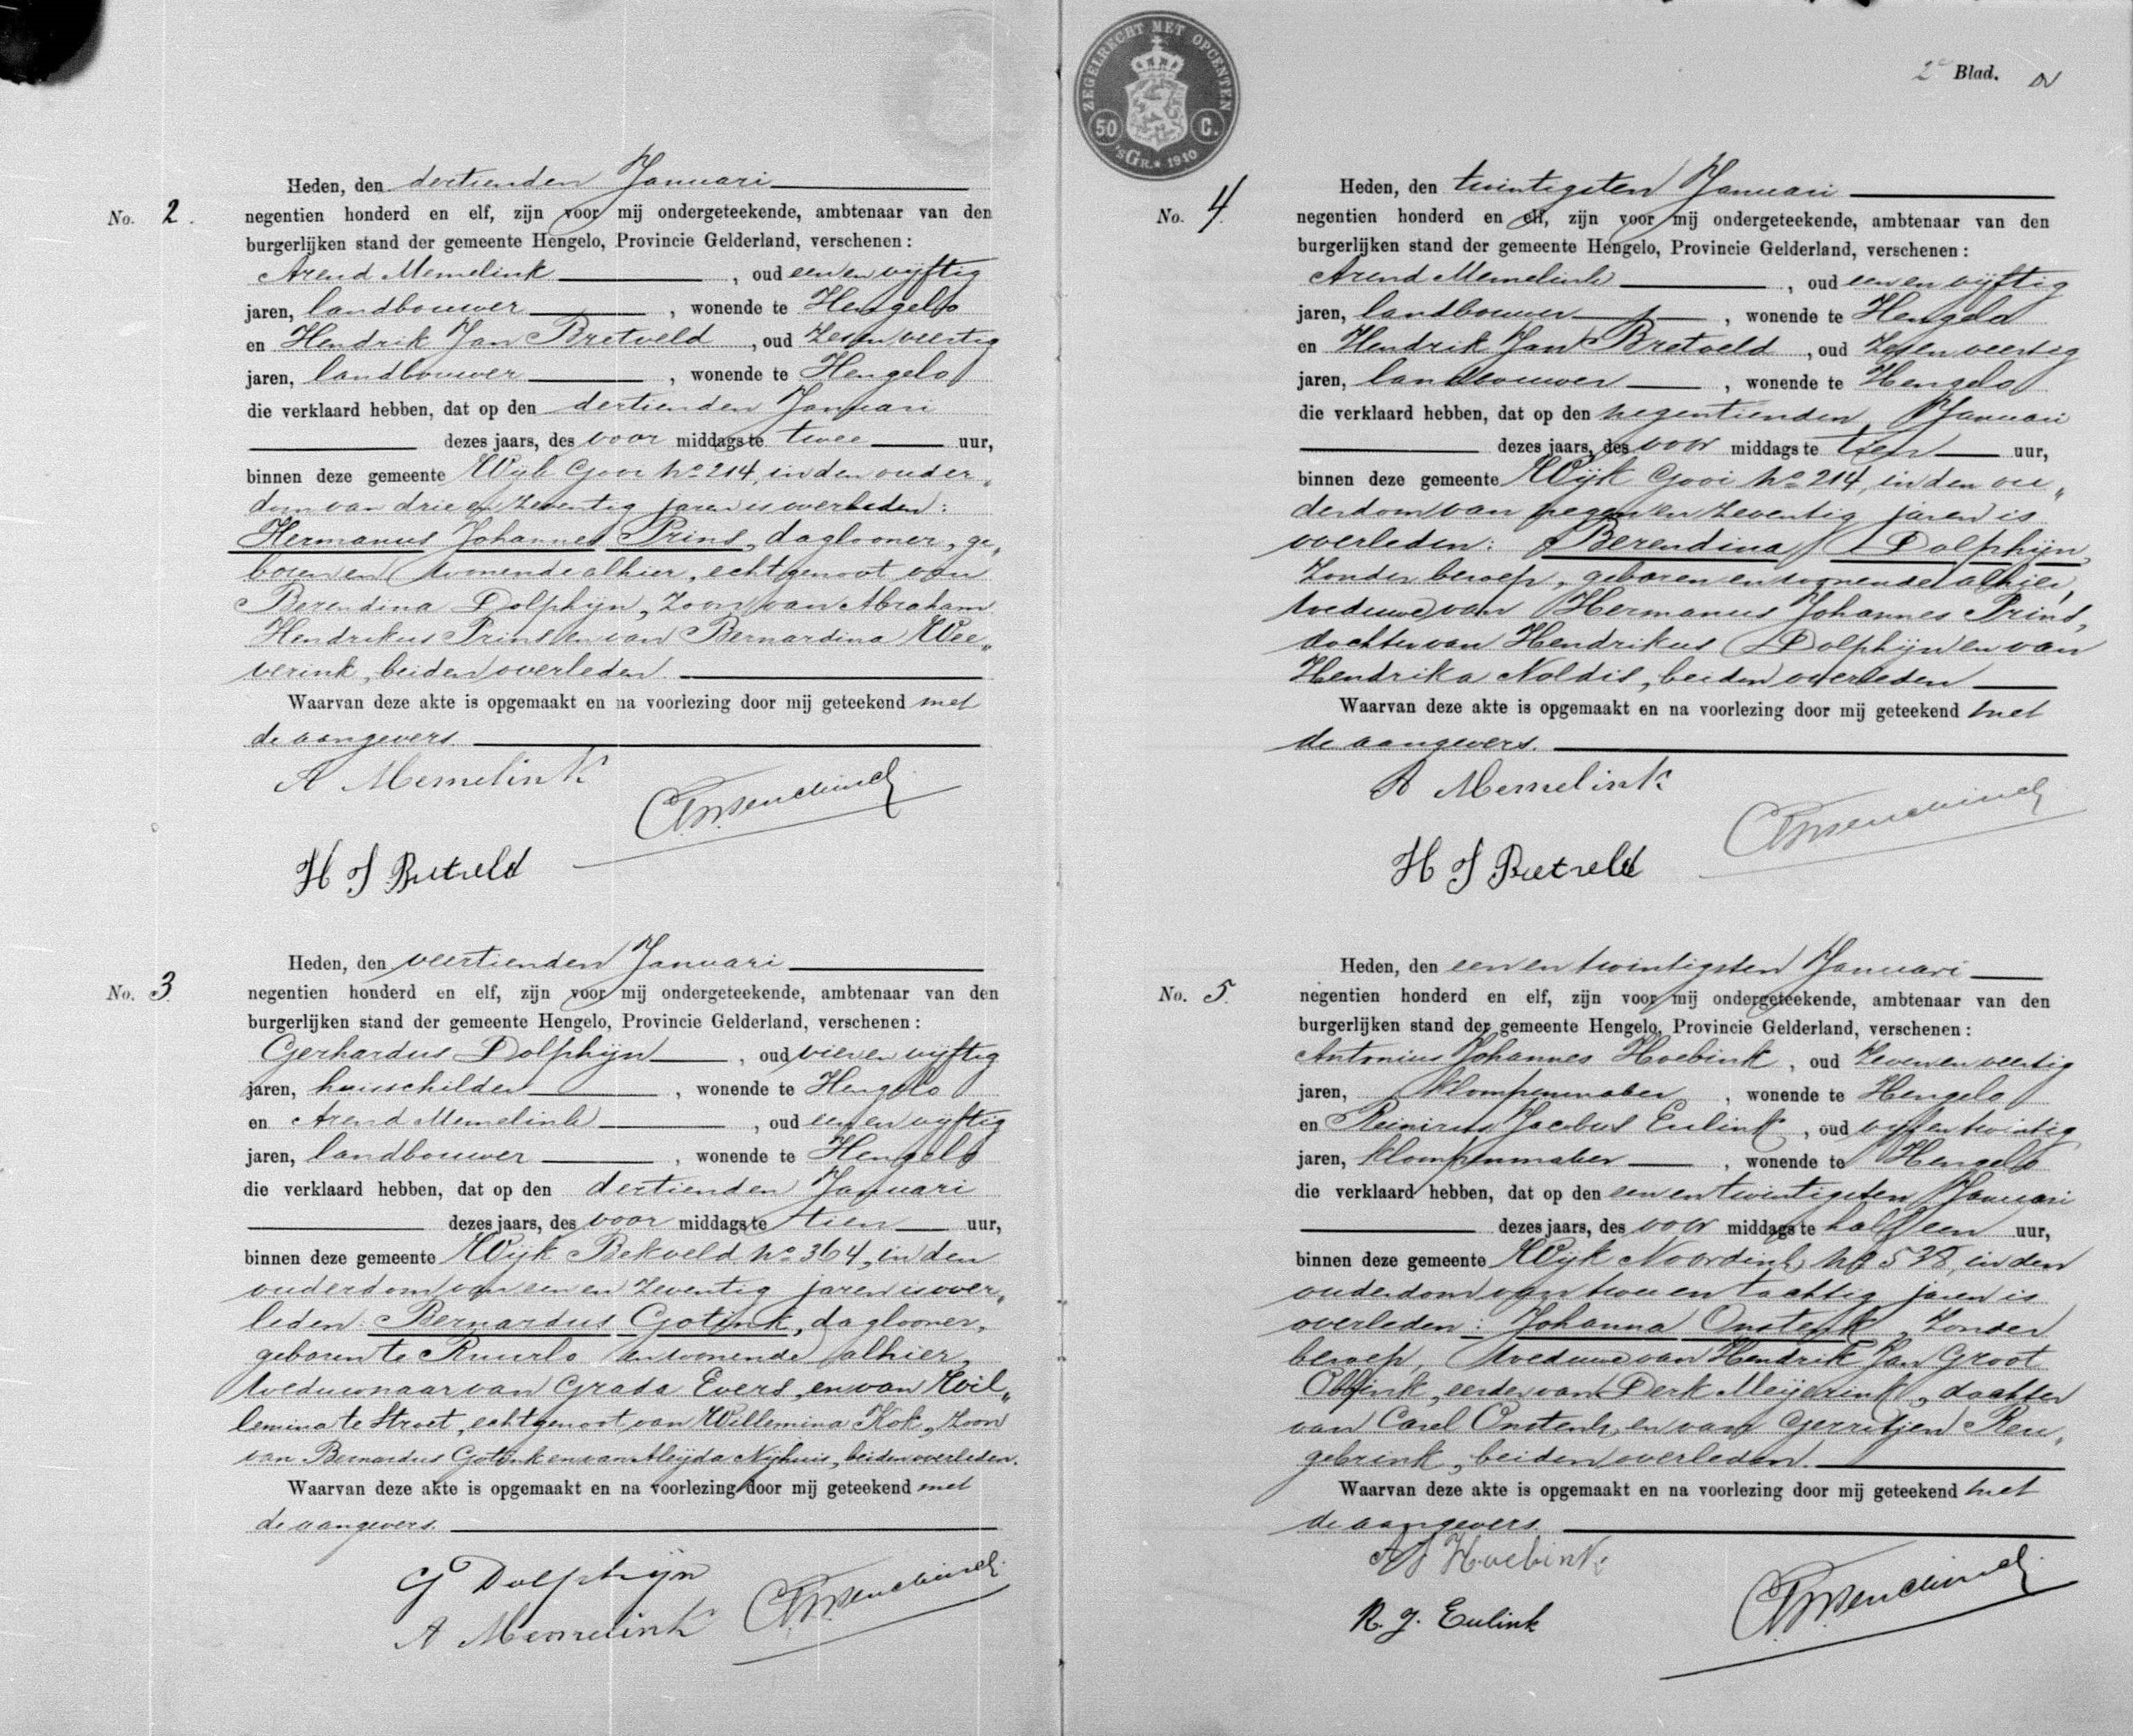 No. 2.
Heden, den dertienden Januari
negentien honderd en elf, zijn voor mij ondergeteekende, ambtenaar van den
burgerlijken stand der gemeente Hengelo, Provincie Gelderland, verschenen:
Arend Memelink, oud een en vijftig
jaren, landbouwer, wonende te Hengelo
en Hendrik Jan Bretveld, oud zes en veertig
jaren, landbouwer, wonende te Hengelo
die verklaard hebben, dat op den dertienden Januari
dezes jaars, des voor middags te twee uur,
binnen deze gemeente Wijk Gooi no 214, in den ouder„
dom van drie en zeventig jaren is overleden:
Hermanus Johannes Prins, daglooner, ge„
boren en wonende alhier, echtgenoot van
Berendina Dolphijn, zoon van Abraham
Hendrikus Prins en van Bernardina Wee„
verink, beiden overleden
Waarvan deze akte is opgemaakt en na voorlezing door mij geteekend met
de aangevers
A Memelink
H J Bretveld
No. 3.
Heden, den veertienden Januari
negentien honderd en elf, zijn voor mij ondergeteekende, ambtenaar van den
burgerlijken stand der gemeente Hengelo, Provincie Gelderland, verschenen:
Gerhardus Dolphijn, oud vier en vijftig
jaren, huisschilder, wonende te Hengelo
en Arend Memelink, oud een en vijftig
jaren, landbouwer, wonende te Hengelo
die verklaard hebben, dat op den dertienden Januari
dezes jaars, des voor middags te tien uur,
binnen deze gemeente Wijk Bekveld no 364, in den
ouderdom van een en zeventig jaren is over„
leden: Bernardus Gotink, daglooner,
geboren te Ruurlo en wonende alhier,
weduwnaar van Grada Evers, en van Wil„
lemina te Stroet, echtgenoot van Willemina Kok, zoon
van Bernardus Gotink en van Aleijda Nijhuis, beiden overleden.
Waarvan deze akte is opgemaakt en na voorlezing door mij geteekend met
de aangevers.
G Dolphijn
A Memelink
ZEGELRECHT MET OPCENTEN
50 C.
'sGR. 1910
2e Blad.
No. 4.
Heden, den twintigsten Januari
negentien honderd en elf, zijn voor mij ondergeteekende, ambtenaar van den
burgerlijken stand der gemeente Hengelo, Provincie Gelderland, verschenen:
Arend Memelink, oud een en vijftig
jaren, landbouwer, wonende te Hengelo
en Hendrik Jan Bretveld, oud zes en veertig
jaren, landbouwer, wonende te Hengelo
die verklaard hebben, dat op den negentienden Januari
dezes jaars, des voor middags te tien uur,
binnen deze gemeente Wijk Gooi no 214, in den ou„
derdom van negen en zeventig jaren is
overleden: Berendina Dolphijn,
zonder beroep, geboren en wonende alhier,
weduwe van Hermanus Johannes Prins,
dochter van Hendrikus Dolphijn en van
Hendrika Noldis, beiden overleden
Waarvan deze akte is opgemaakt en na voorlezing door mij geteekend met
de aangevers.
A Memelink
H J Bretveld
No. 5.
Heden, den een en twintigsten Januari
negentien honderd en elf, zijn voor mij ondergeteekende, ambtenaar van den
burgerlijken stand der gemeente Hengelo, Provincie Gelderland, verschenen:
Antonius Johannes Hoebink, oud zeven en veertig
jaren, klompenmaker, wonende te Hengelo
en Reinirus Jacobus Eulink, oud vijf en twintig
jaren, klompenmaker, wonende te Hengelo
die verklaard hebben, dat op den een en twintigsten Januari
dezes jaars, des voor middags te half een uur,
binnen deze gemeente Wijk Noordink no 528, in den
ouderdom van twee en tachtig jaren is
overleden: Johanna Onstenk, zonder
beroep, weduwe van Hendrik Jan Groot
Obbink, eerder van Derk Meijerink, dochter
van Carel Onstenk, en van Gerritjen Reu„
gebrink, beiden overleden.
Waarvan deze akte is opgemaakt en na voorlezing door mij geteekend met
de aangevers.
A J Hoebink
R. J. Eulink